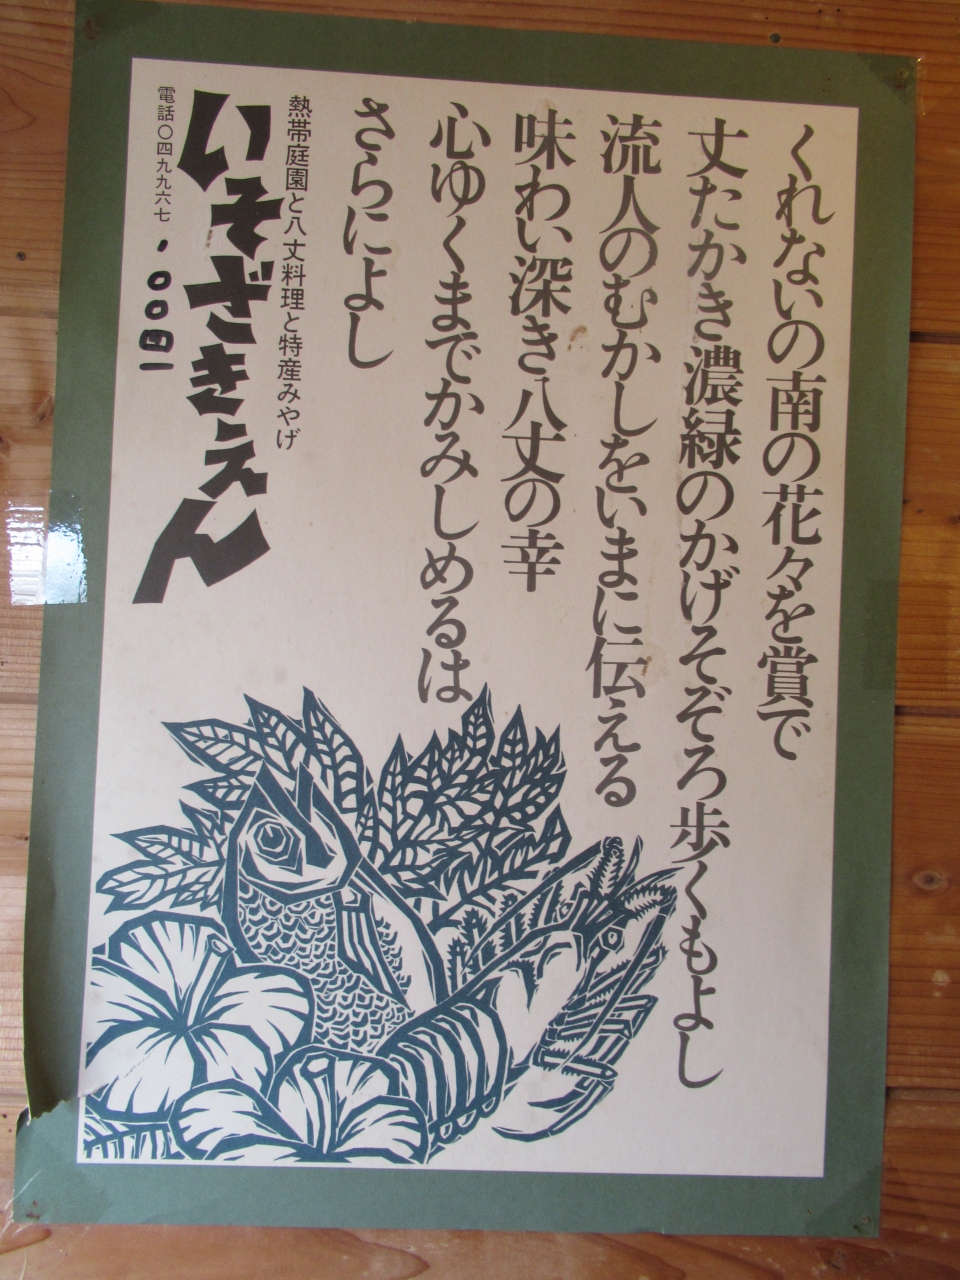 くれないの南の花々を賞で
丈たかき濃緑のかげそぞろ歩くもよし
流人のむかしをいまに伝える
味わい深き八丈の幸
心ゆくまでかみしめるは
さらによし
熱帯庭園と八丈料理と特産みやげ
いそざきえん
電話〇四九九六七、〇〇四一